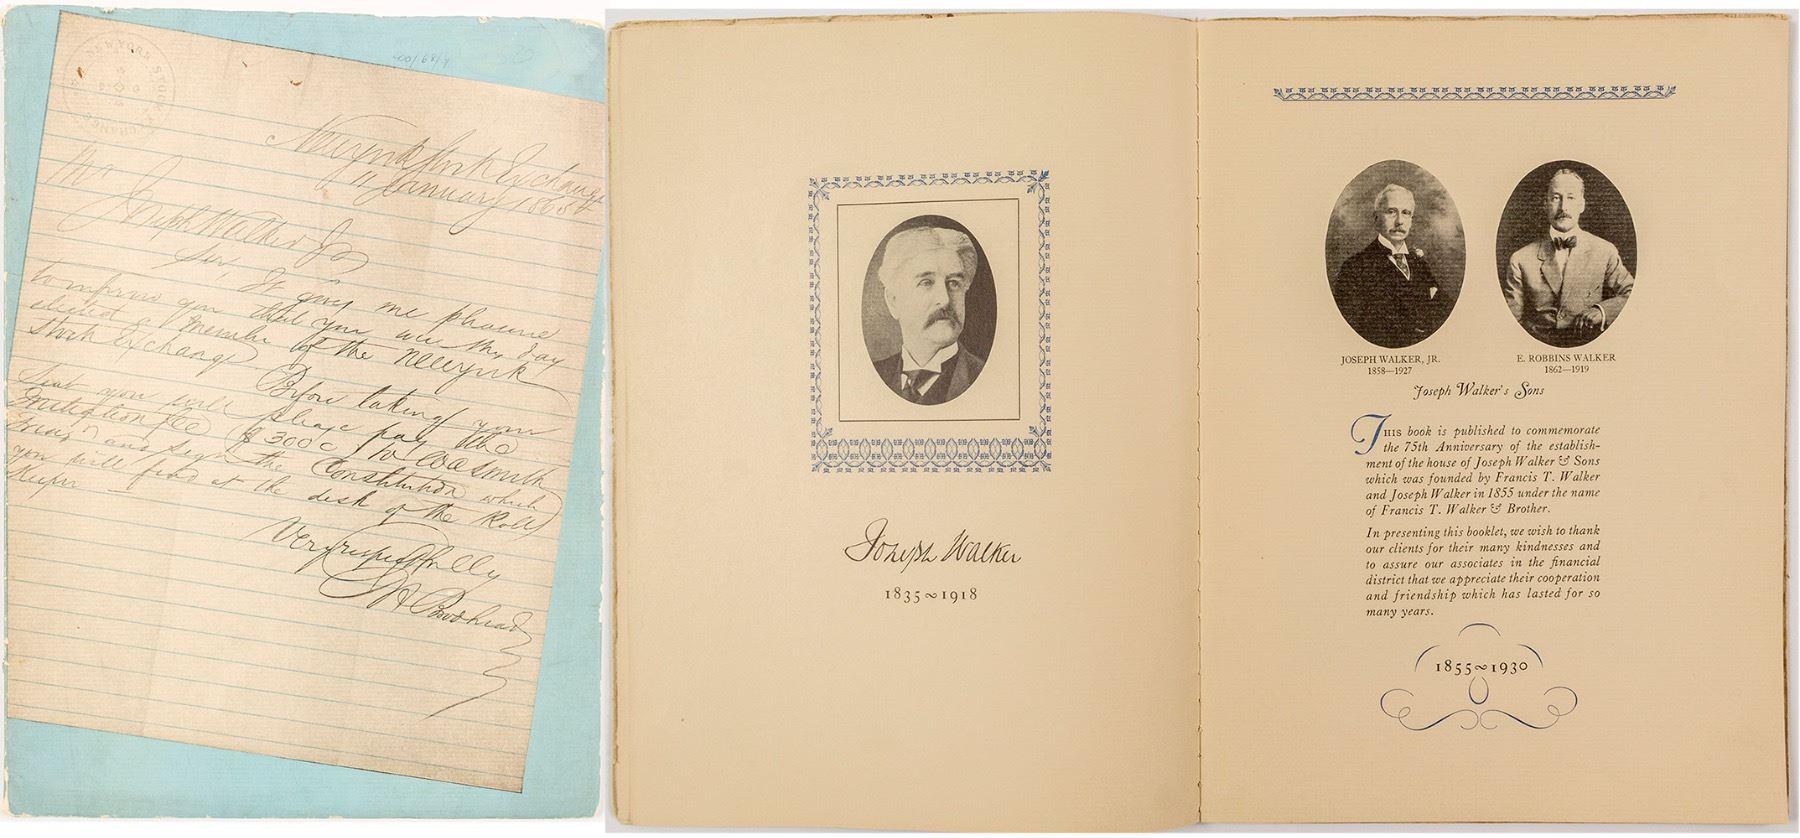 NEW YORK STOCK EXCHANGE
New york Stock Exchange
11 January 1865
Mr
Joseph Walker Jr
Sir, It gives me pleasure
to inform you that you were this day
elected a Member of the New york
Stock Exchange
Before taking your
Seat you will please pay the
Initiation fee $3000 to
and sign the Constitution which
you will find at the desk of the Roll
Keeper
Very respectfully
Joseph Walker
1835~1918
JOSEPH WALKER, JR.
1858—1927
E. ROBBINS WALKER
1862—1919
Joseph Walker's Sons
THIS book is published to commemorate
the 75th Anniversary of the establish-
ment of the house of Joseph Walker & Sons
which was founded by Francis T. Walker
and Joseph Walker in 1855 under the name
of Francis T. Walker & Brother.
In presenting this booklet, we wish to thank
our clients for their many kindnesses and
to assure our associates in the financial
district that we appreciate their cooperation
and friendship which has lasted for so
many years.
1855~1930